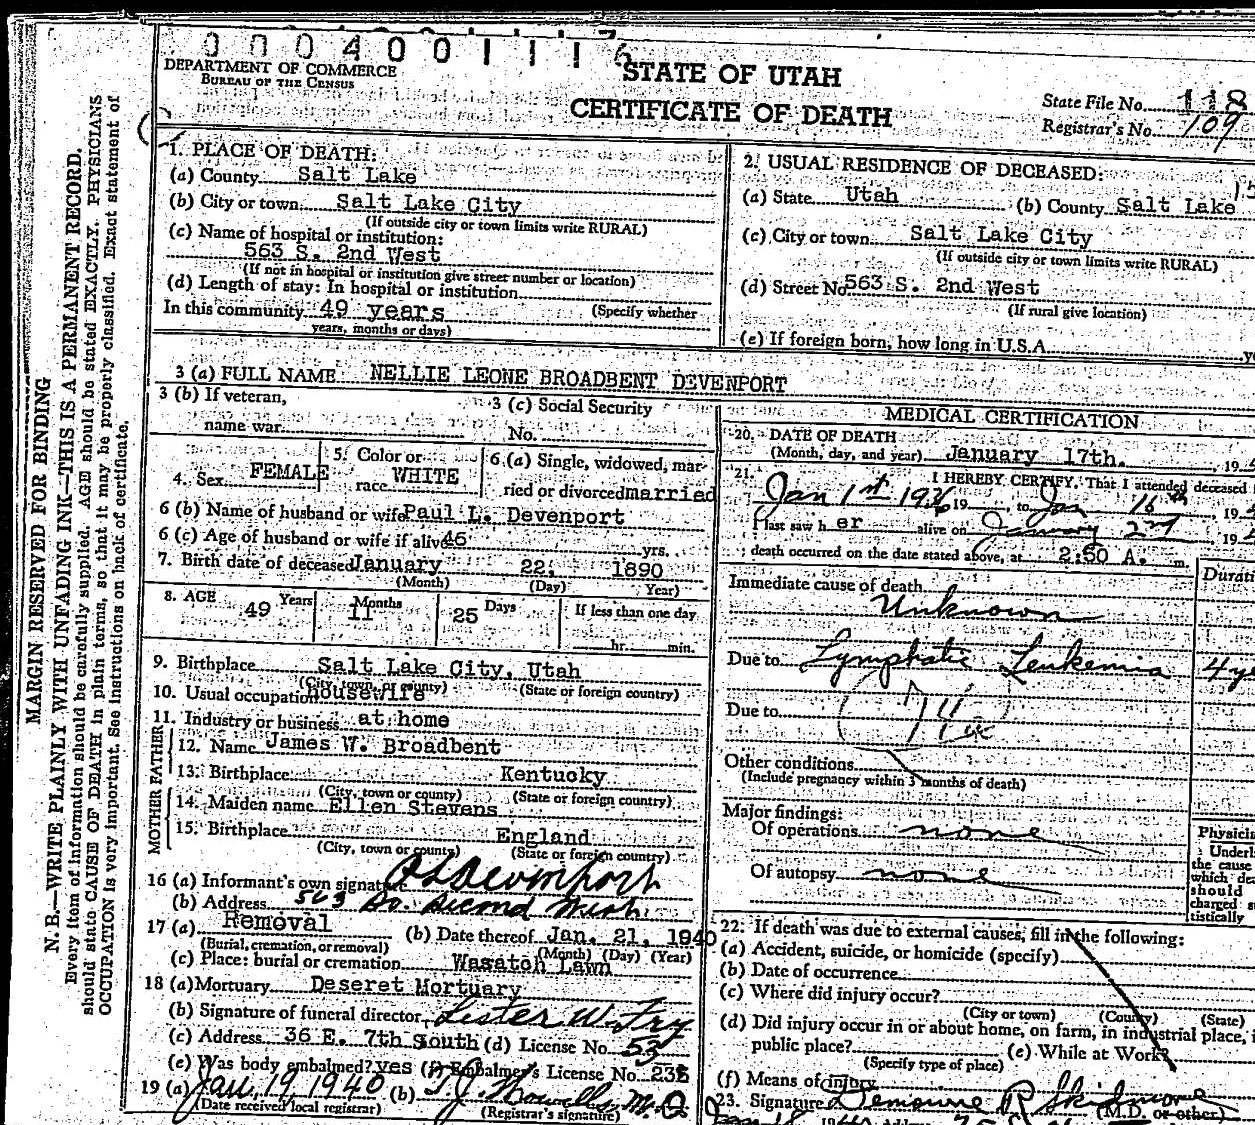 0 0 0 4 0 0 1 1 1 6
DEPARTMENT OF COMMERCE
BUREAU OF THE CENSUS
STATE OF UTAH
CERTIFICATE OF DEATH
State File No. 118
Registrar's No. 109
MARGIN RESERVED FOR BINDING
N. B.—WRITE PLAINLY WITH UNFADING INK—THIS IS A PERMANENT RECORD.
Every item of information should be carefully supplied. AGE should be stated EXACTLY. PHYSICIANS
should state CAUSE OF DEATH in plain terms, so that it may be properly classified. Exact statement of
OCCUPATION is very important. See instructions on back of certificate.
1. PLACE OF DEATH:
(a) County Salt Lake
(b) City or town Salt Lake City
(If outside city or town limits write RURAL)
(c) Name of hospital or institution:
563 S. 2nd West
(If not in hospital or institution give street number or location)
(d) Length of stay: In hospital or institution
(Specify whether
In this community 49 years
years, months or days)
2. USUAL RESIDENCE OF DECEASED:
(a) State Utah (b) County Salt Lake
(c) City or town Salt Lake City
(If outside city or town limits write RURAL)
(d) Street No. 563 S. 2nd West
(If rural give location)
(e) If foreign born, how long in U.S.A.
3 (a) FULL NAME NELLIE LEONE BROADBENT DEVENPORT
3 (b) If veteran,
name war
3 (c) Social Security
No.
4. Sex FEMALE
5. Color or
race WHITE
6. (a) Single, widowed, mar-
ried or divorced married
6 (b) Name of husband or wife Paul L. Devenport
6 (c) Age of husband or wife if alive 46 yrs.
7. Birth date of deceased January 22, 1890
(Month) (Day) Year)
8. AGE 49 Years 11 Months 25 Days If less than one day
hr. min.
9. Birthplace Salt Lake City, Utah
(City, town or county) (State or foreign country)
10. Usual occupation housewife
11. Industry or business at home
FATHER
12. Name James W. Broadbent
13. Birthplace Kentucky
(City, town or county) (State or foreign country)
MOTHER
14. Maiden name Ellen Stevens
15. Birthplace England
(City, town or county) (State or foreign country)
16 (a) Informant's own signature P L Devenport
(b) Address 563 So. Second West
17 (a) Removal (b) Date thereof Jan. 21, 1940
(Burial, cremation, or removal) (Month) (Day) (Year)
(c) Place: burial or cremation Wasatch Lawn
18 (a) Mortuary Deseret Mortuary
(b) Signature of funeral director Lester W. Fry
(c) Address 36 E. 7th South (d) License No. 53
(e) Was body embalmed? yes (f) Embalmer's License No. 235
19 (a) Jan. 19, 1940 (b) T. J. Howells, M.D.
(Date received local registrar) (Registrar's signature)
MEDICAL CERTIFICATION
20. DATE OF DEATH
(Month, day, and year) January 17th. , 19
21. I HEREBY CERTIFY, That I attended deceased
Jan 1st 1936 19 , to Jan 16th , 19
I last saw h er alive on January 2nd 19
death occurred on the date stated above, at 2:50 A. m.
Immediate cause of death
Unknown
Due to Lymphatic Leukemia
Due to
Other conditions
(Include pregnancy within 3 months of death)
Major findings:
Of operations none
Of autopsy none
Durati
4 ye
Physici
Underl
the cause
which dea
should
charged s
tistically
22. If death was due to external causes, fill in the following:
(a) Accident, suicide, or homicide (specify)
(b) Date of occurrence
(c) Where did injury occur?
(City or town) (County) (State)
(d) Did injury occur in or about home, on farm, in industrial place, i
public place? (e) While at Work?
(Specify type of place)
(f) Means of injury
23. Signature Skidmore
(M.D. or other)